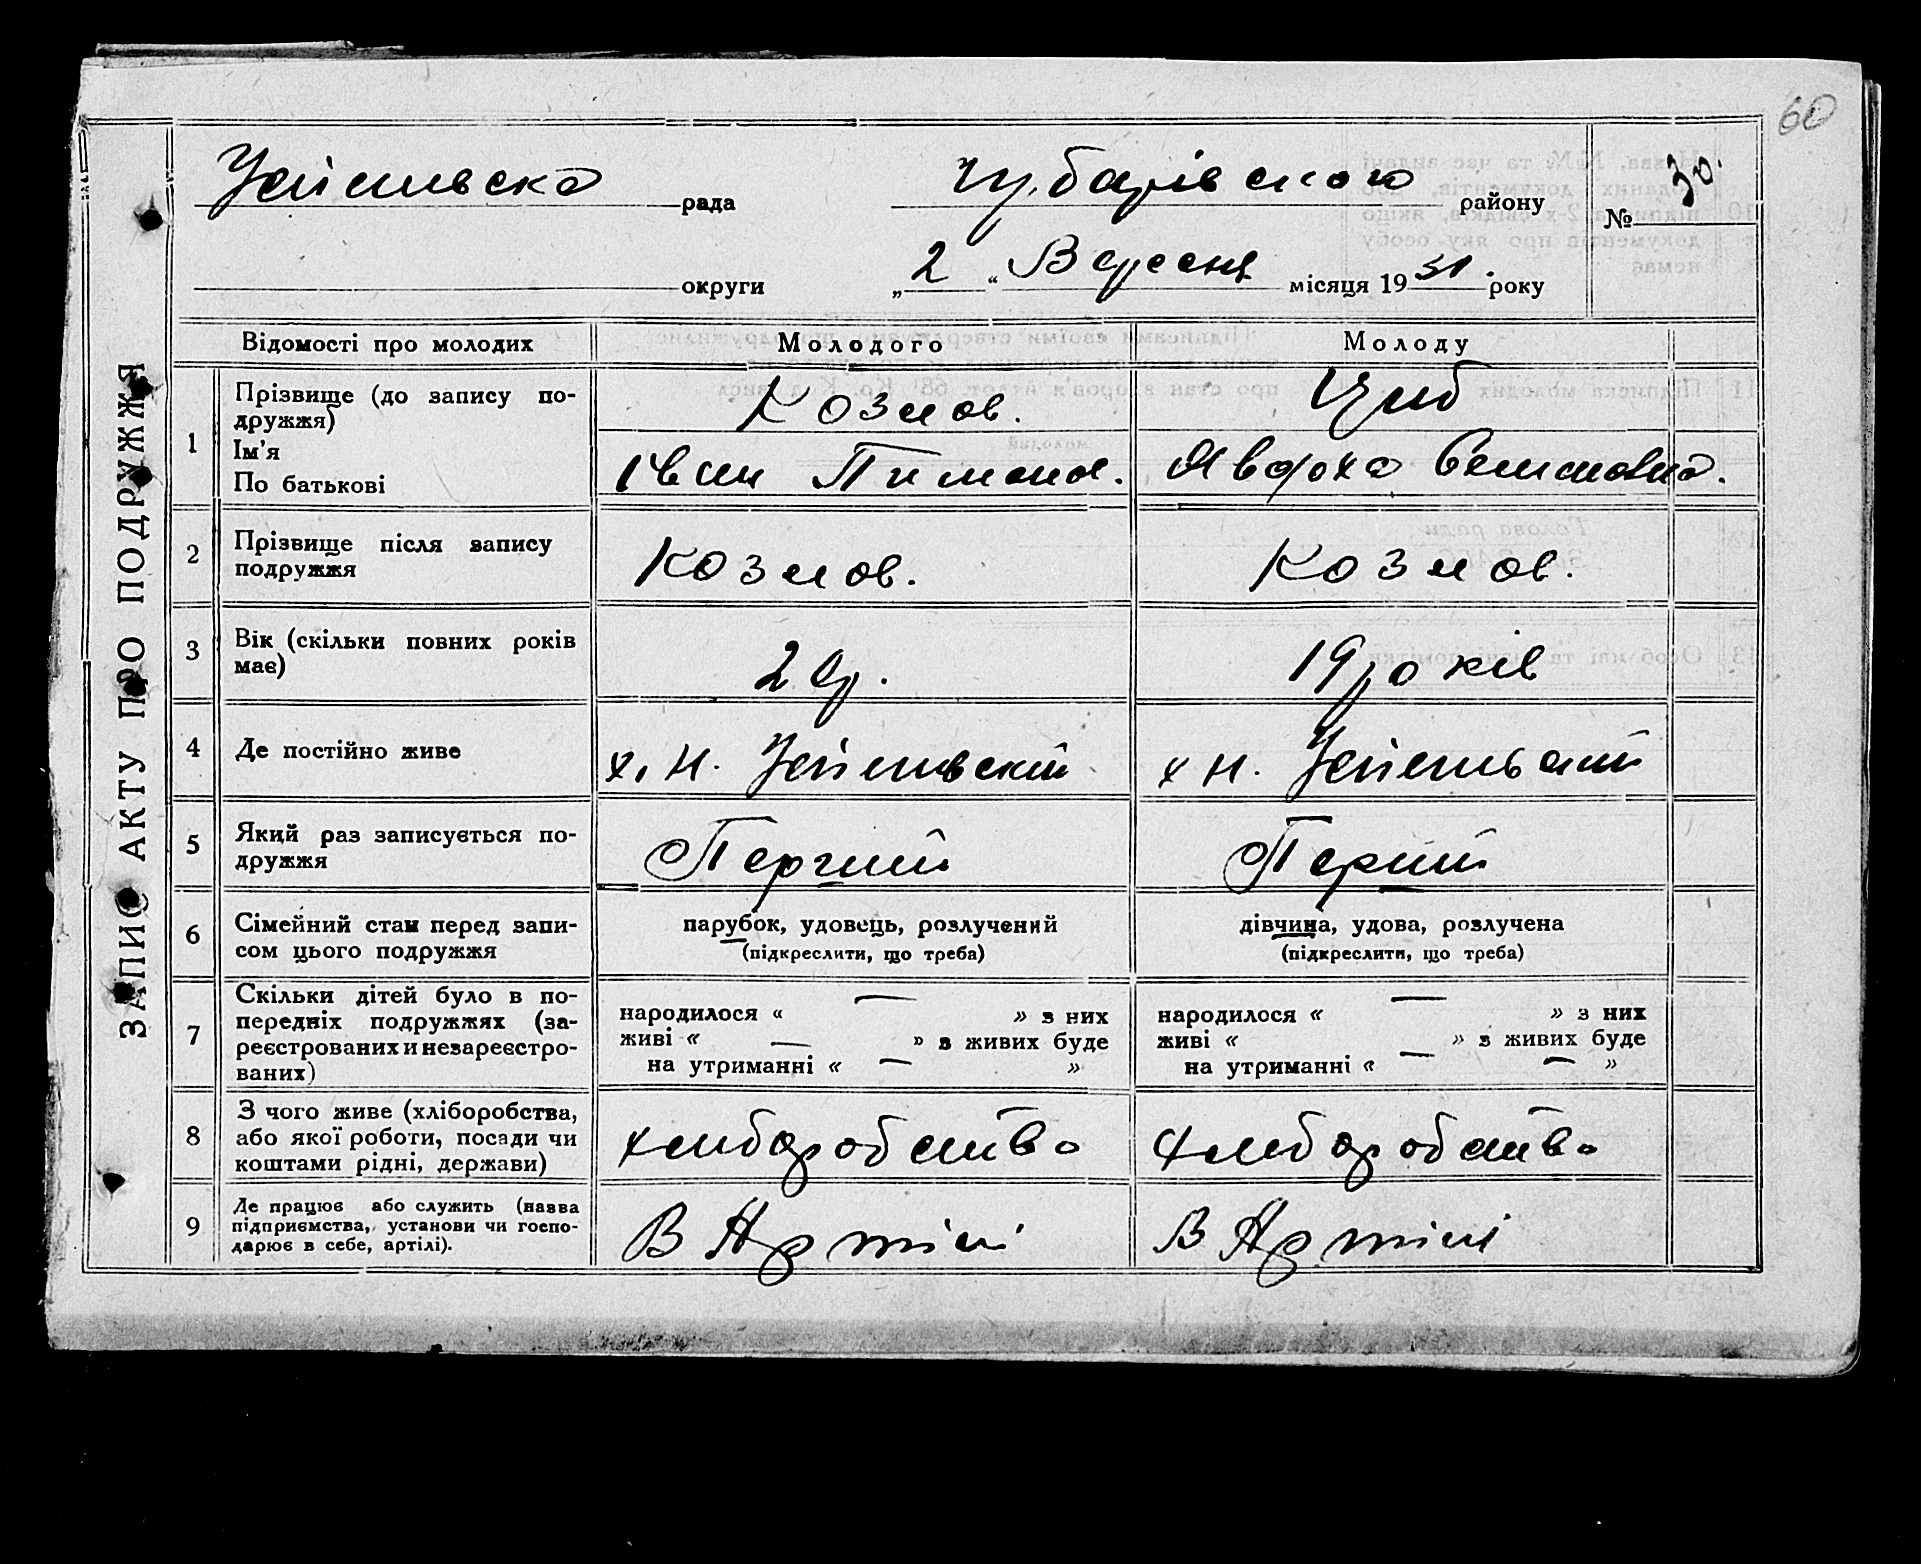 60
рада
Чубарівського району
№ 30.
округи
„ 2 “ Вересня місяця 19 31. року
Відомості про молодих Молодого Молоду
ЗАПИС АКТУ ПРО ПОДРУЖЖЯ
1 Прізвище (до запису по-
дружжя)
Ім'я
По батькові
Козлов.
Іван
Циб
Явдоха
2 Прізвище після запису
подружжя
Козлов. Козлов.
3 Вік (скільки повних років
має)
20р. 19 років
4 Де постійно живе
х. Н. х Н.
5 Який раз записується по-
дружжя
6 Сімейний стан перед запи-
сом цього подружжя
парубок, удовець, розлучений
(підкреслити, що треба)
дівчина, удова, розлучена
(підкреслити, що треба)
7 Скільки дітей було в по-
передніх подружжях (за-
реєстрованих и незареєстро-
ваних)
народилося « — » з них
живі « — » з живих буде
на утриманні « — »
народилося « — » з них
живі « — » з живих буде
на утриманні « — »
8 З чого живе (хліборобства,
або якої роботи, посади чи
коштами рідні, держави)
хлиборобство хлиборобство
9 Де працює або служить (назва
підприємства, установи чи госпо-
дарює в себе, артілі).
В Артілі В Артілі